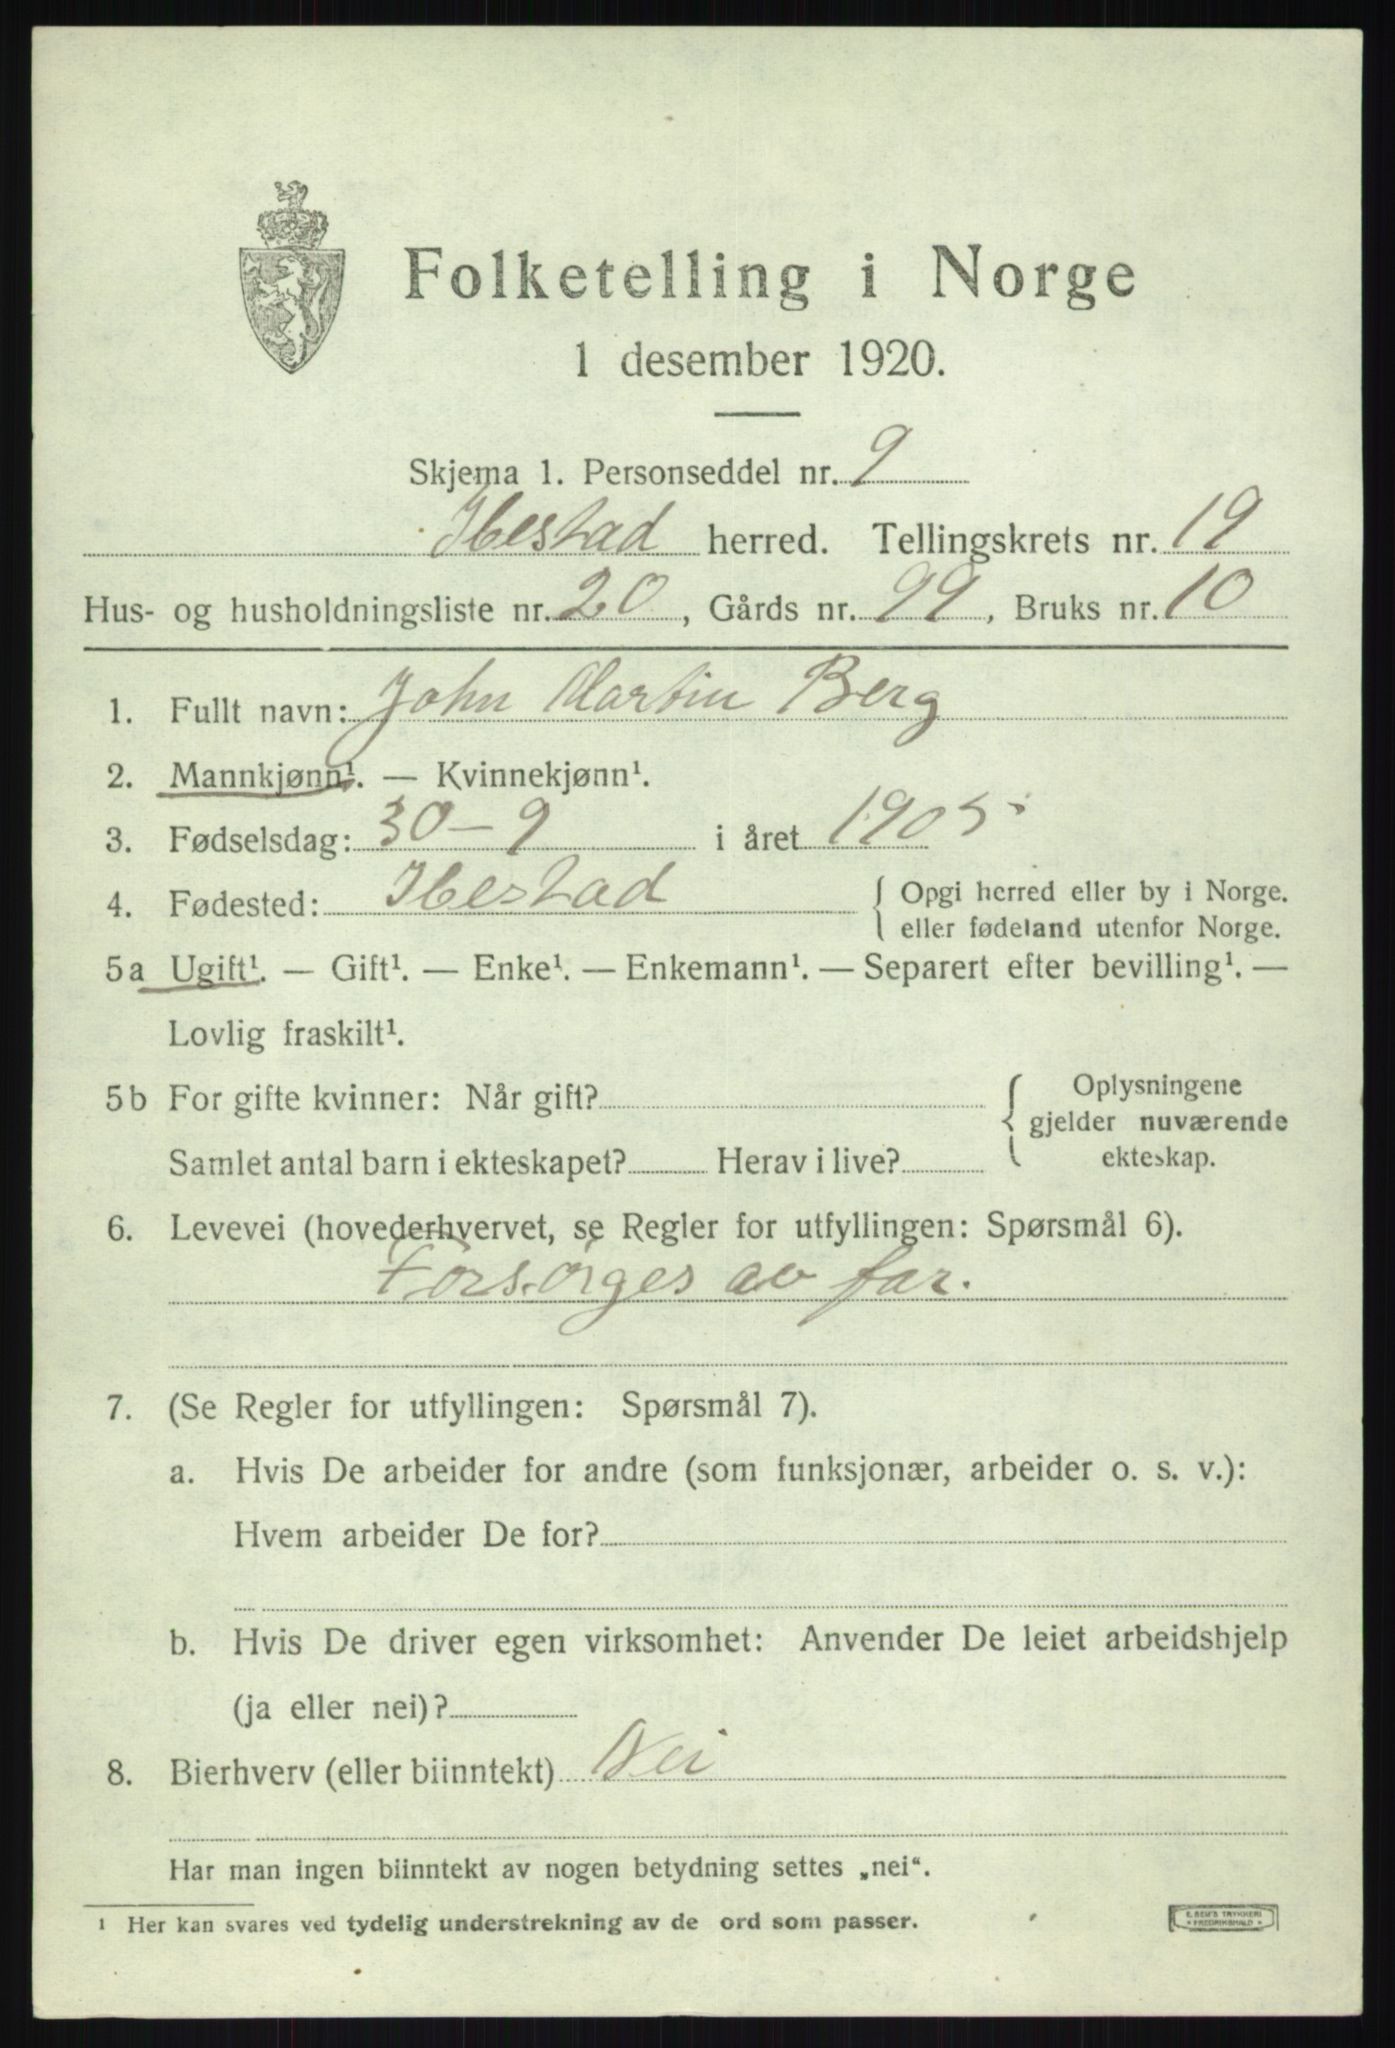 Folketelling i Norge
1 desember 1920.
Skjema 1. Personseddel nr. 9
Ibestad herred. Tellingskrets nr. 19
Hus- og husholdningsliste nr. 20, Gårds nr. 99, Bruks nr. 10
1. Fullt navn: John Martin Berg
2. Mannkjønn¹. — Kvinnekjønn¹.
3. Fødselsdag: 30-9 i året 1905
4. Fødested: Ibestad { Opgi herred eller by i Norge.
eller fødeland utenfor Norge.
5a Ugift¹. — Gift¹. — Enke¹. — Enkemann¹. — Separert efter bevilling¹. —
Lovlig fraskilt¹.
5b For gifte kvinner: Når gift? { Oplysningene
gjelder nuværende
Samlet antal barn i ekteskapet? Herav i live? ekteskap.
6. Levevei (hovederhvervet, se Regler for utfyllingen: Spørsmål 6).
Forsörges av far.
7. (Se Regler for utfyllingen: Spørsmål 7).
a. Hvis De arbeider for andre (som funksjonær, arbeider o. s. v.):
Hvem arbeider De for?
b. Hvis De driver egen virksomhet: Anvender De leiet arbeidshjelp
(ja eller nei)?
8. Bierhverv (eller biinntekt) Nei
Har man ingen biinntekt av nogen betydning settes „nei“.
¹ Her kan svares ved tydelig understrekning av de ord som passer.
E. SEM'S TRYKKERI
FREDRIKSHALD